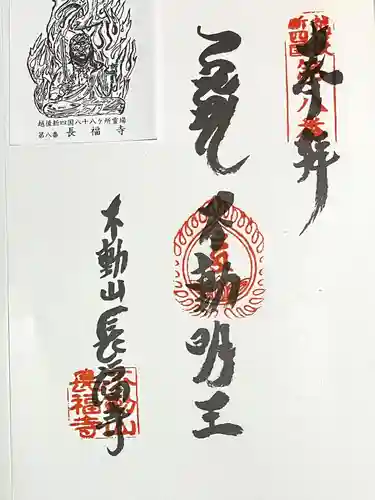 越後新四国八十八ケ所霊場
第八番 長福寺
奉拝
不動明王
不動山長福寺
不動山
長福寺